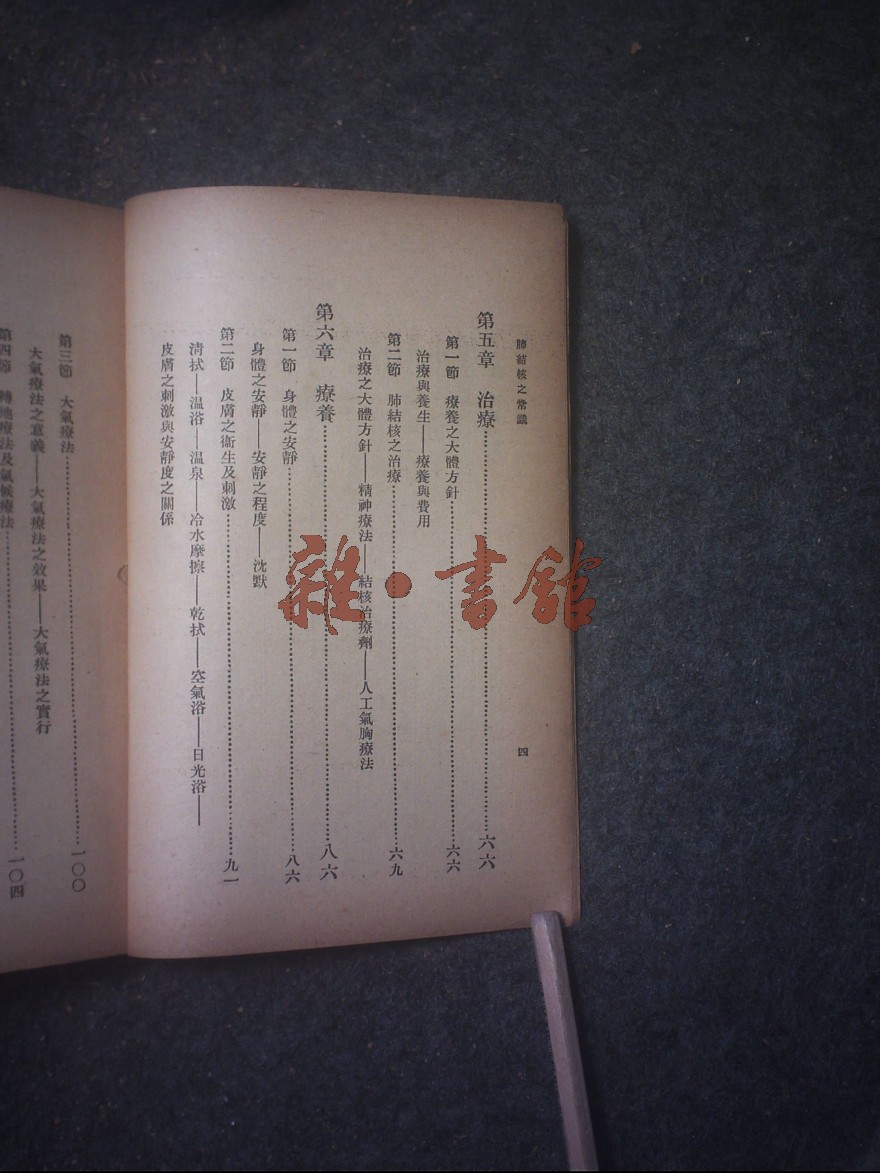 肺結核之常識
四
第五章　治療…………六六
第一節　療養之大體方針…………六六
治療與養生——療養與費用
第二節　肺結核之治療…………六九
治療之大體方針——精神療法——結核治療劑——人工氣胸療法
第六章　療養…………八六
第一節　身體之安靜…………八六
身體之安靜——安靜之程度——沈默
第二節　皮膚之衞生及刺激…………九一
淸拭——溫浴——溫泉——冷水摩擦——乾拭——空氣浴——日光浴——
皮膚之刺激與安靜度之關係
第三節　大氣療法…………一〇〇
大氣療法之意義——大氣療法之效果——大氣療法之實行
第四節　轉地療法及氣候療法…………一〇四
雜·書館